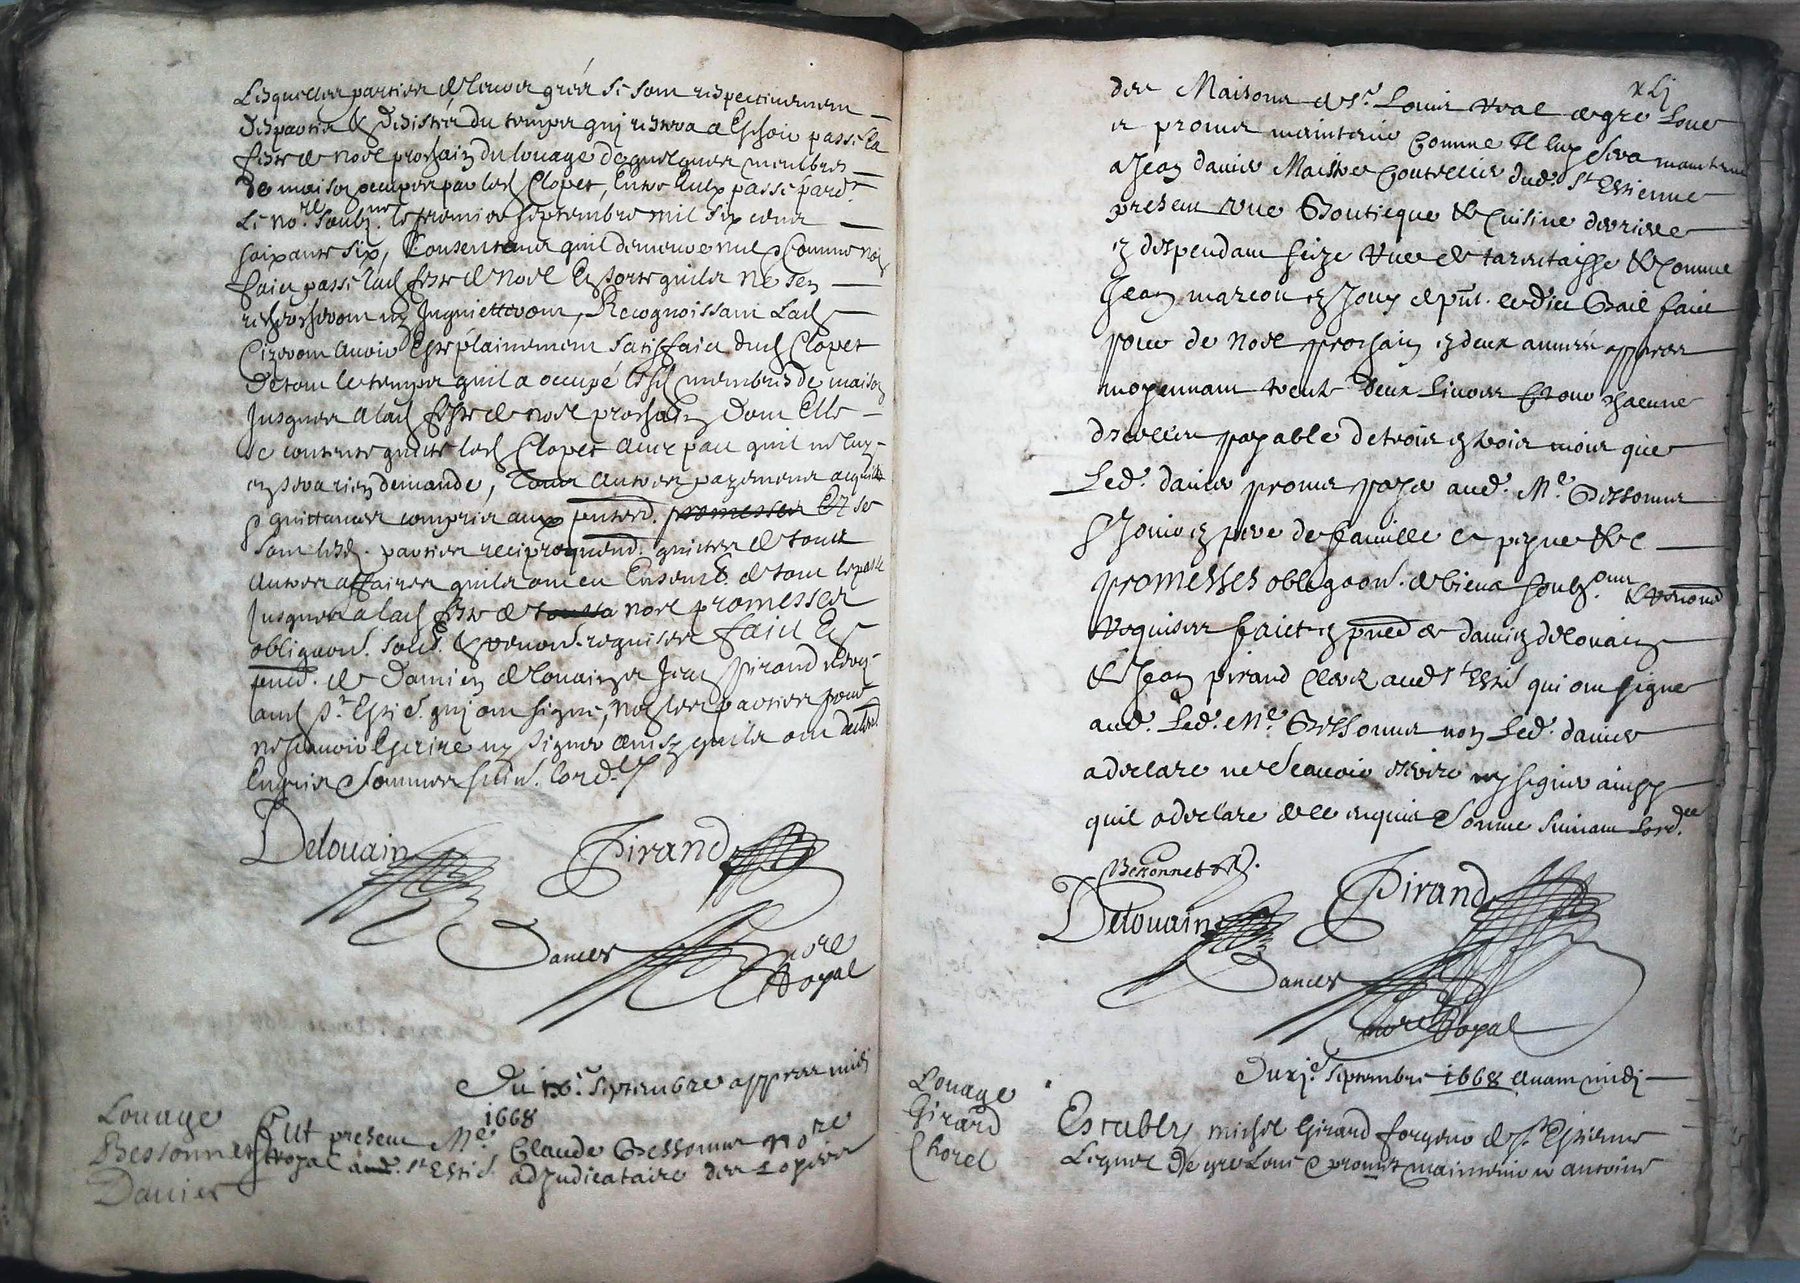 Lesquelles parties de leurs grés se sont respectivement
despartis & desistés du temps qui restera a Eschoir passé la
feste de noel prochain du louage de quelques membres
de maison occupés par led Clopet, Entre Eulx passé pard.
Le no.re soubz.ne le premier septembre mil six cens
soixante six, Consentans quil demeure nul & comme non
faict passé lad feste de noel En sorte quilz ne sen
rechercheront ny Inquietteront, Recognoissant Lad
avoir Esté plainement satisfaict dud Clopet
de tout le temps quil a occupé lesd membres de maison
Jusques a lad feste de noel prochain dont Elle
se contente quitte led Clopet avec pact quil ne luy
en sera rien demandé, Tous autres payemens acquitz
& quittances comprins aux pnted. promesses Et se
sont lesd. parties reciproquemt. quittes de toute
autres affaires quilz ont eu Ensemb. de tout le passé
Jusques a lad feste de noel promesses
obligaon. soub. & renon. requises faict Es
pnce. de Damien delouain & Jean Pirand clerq
aud St Esti. qui ont signé, non les parties pour
ne scavoir Escrire ny signer ainsy quilz ont declaré
Enquis & sommes suiv. lord.ce
Delouain Pirand
Dancer no.re
Royal
Du x.e septembre appres midi
1668
Louage
Bessonnet
Danier
Fut present Me Claude Bessonnet no.re
Royal aud. St Esti. adjudicataire des Loyers
xlj
des Maisons de Sr. Louis Real de gre Loue
et promet maintenir comme Il luy sera maintenu
a Jean danier Maistre coutellier dud. St Estienne
present une Boutique & cuisine derriere
en despendant size rue de tarentaisse & comme
Jean marcou en Jouy de pnt. ledict Bail faict
pour de noel prochain en deux années appres
moyennant trente deux livres pour chacune
dicelles payable de trois en trois mois que
Led. danier promet payer aud. Me. Bessonnet
& Jouir en pere de famille a peyne &c
promesses obligaons. de biens soubz.ons & renond
Requises faict en pnce de damien delouain
& Jean pirand clerz aud St Esti qui ont signe
aud. Led. Me. Bessonnet non Led. danier
a declare ne scavoir escrire ny signer ainsy
quil a declare de ce enquis & somme suivant Lord.ce
Bessonnet
Delouain Pirand
Dancer
no.re Royal
Du xj.e septembre 1668 avant midi
Louage
Girard
Chorel
Estably michel Girard forgeur de St. Estienne
Lequel de gre Loue & promet maintenir a antoine